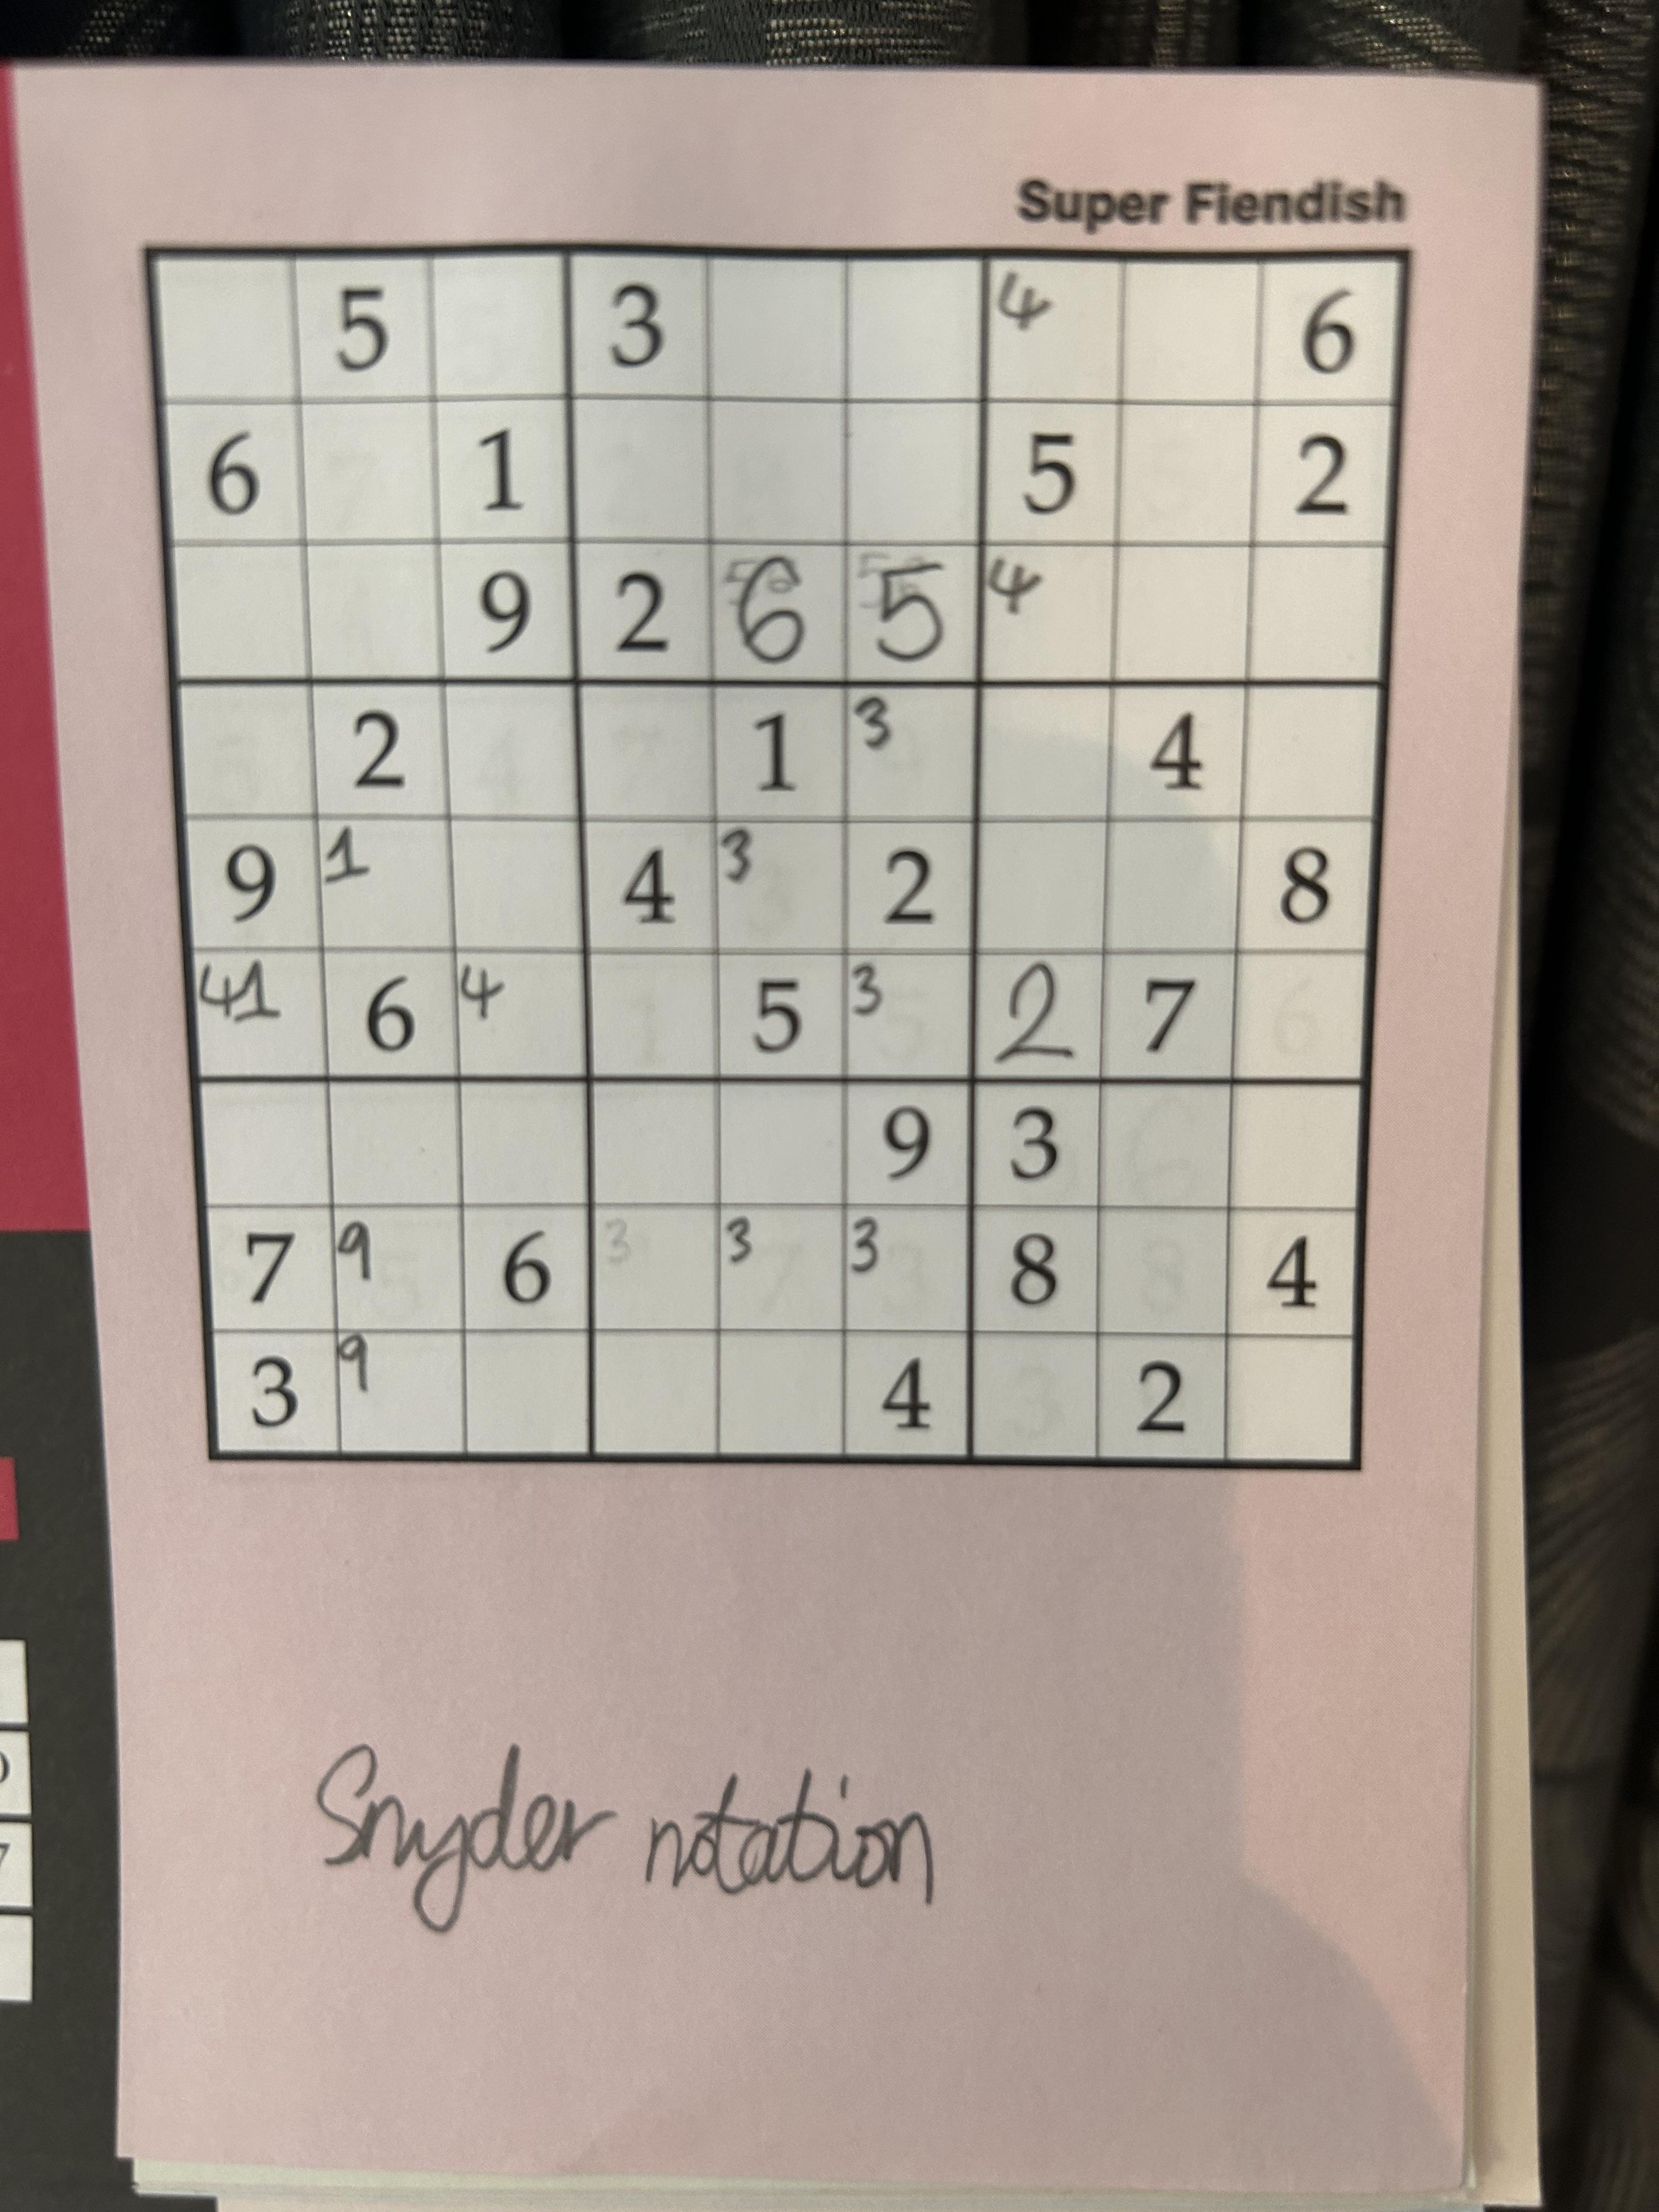 Super Fiendish
5 3 4 6
6 1 5 2
9 2 6 5 4
2 1 3 4
9 1 4 3 2 8
41 6 4 5 3 2 7
9 3
7 9 6 3 3 3 8 4
3 9 4 2
Snyder notation